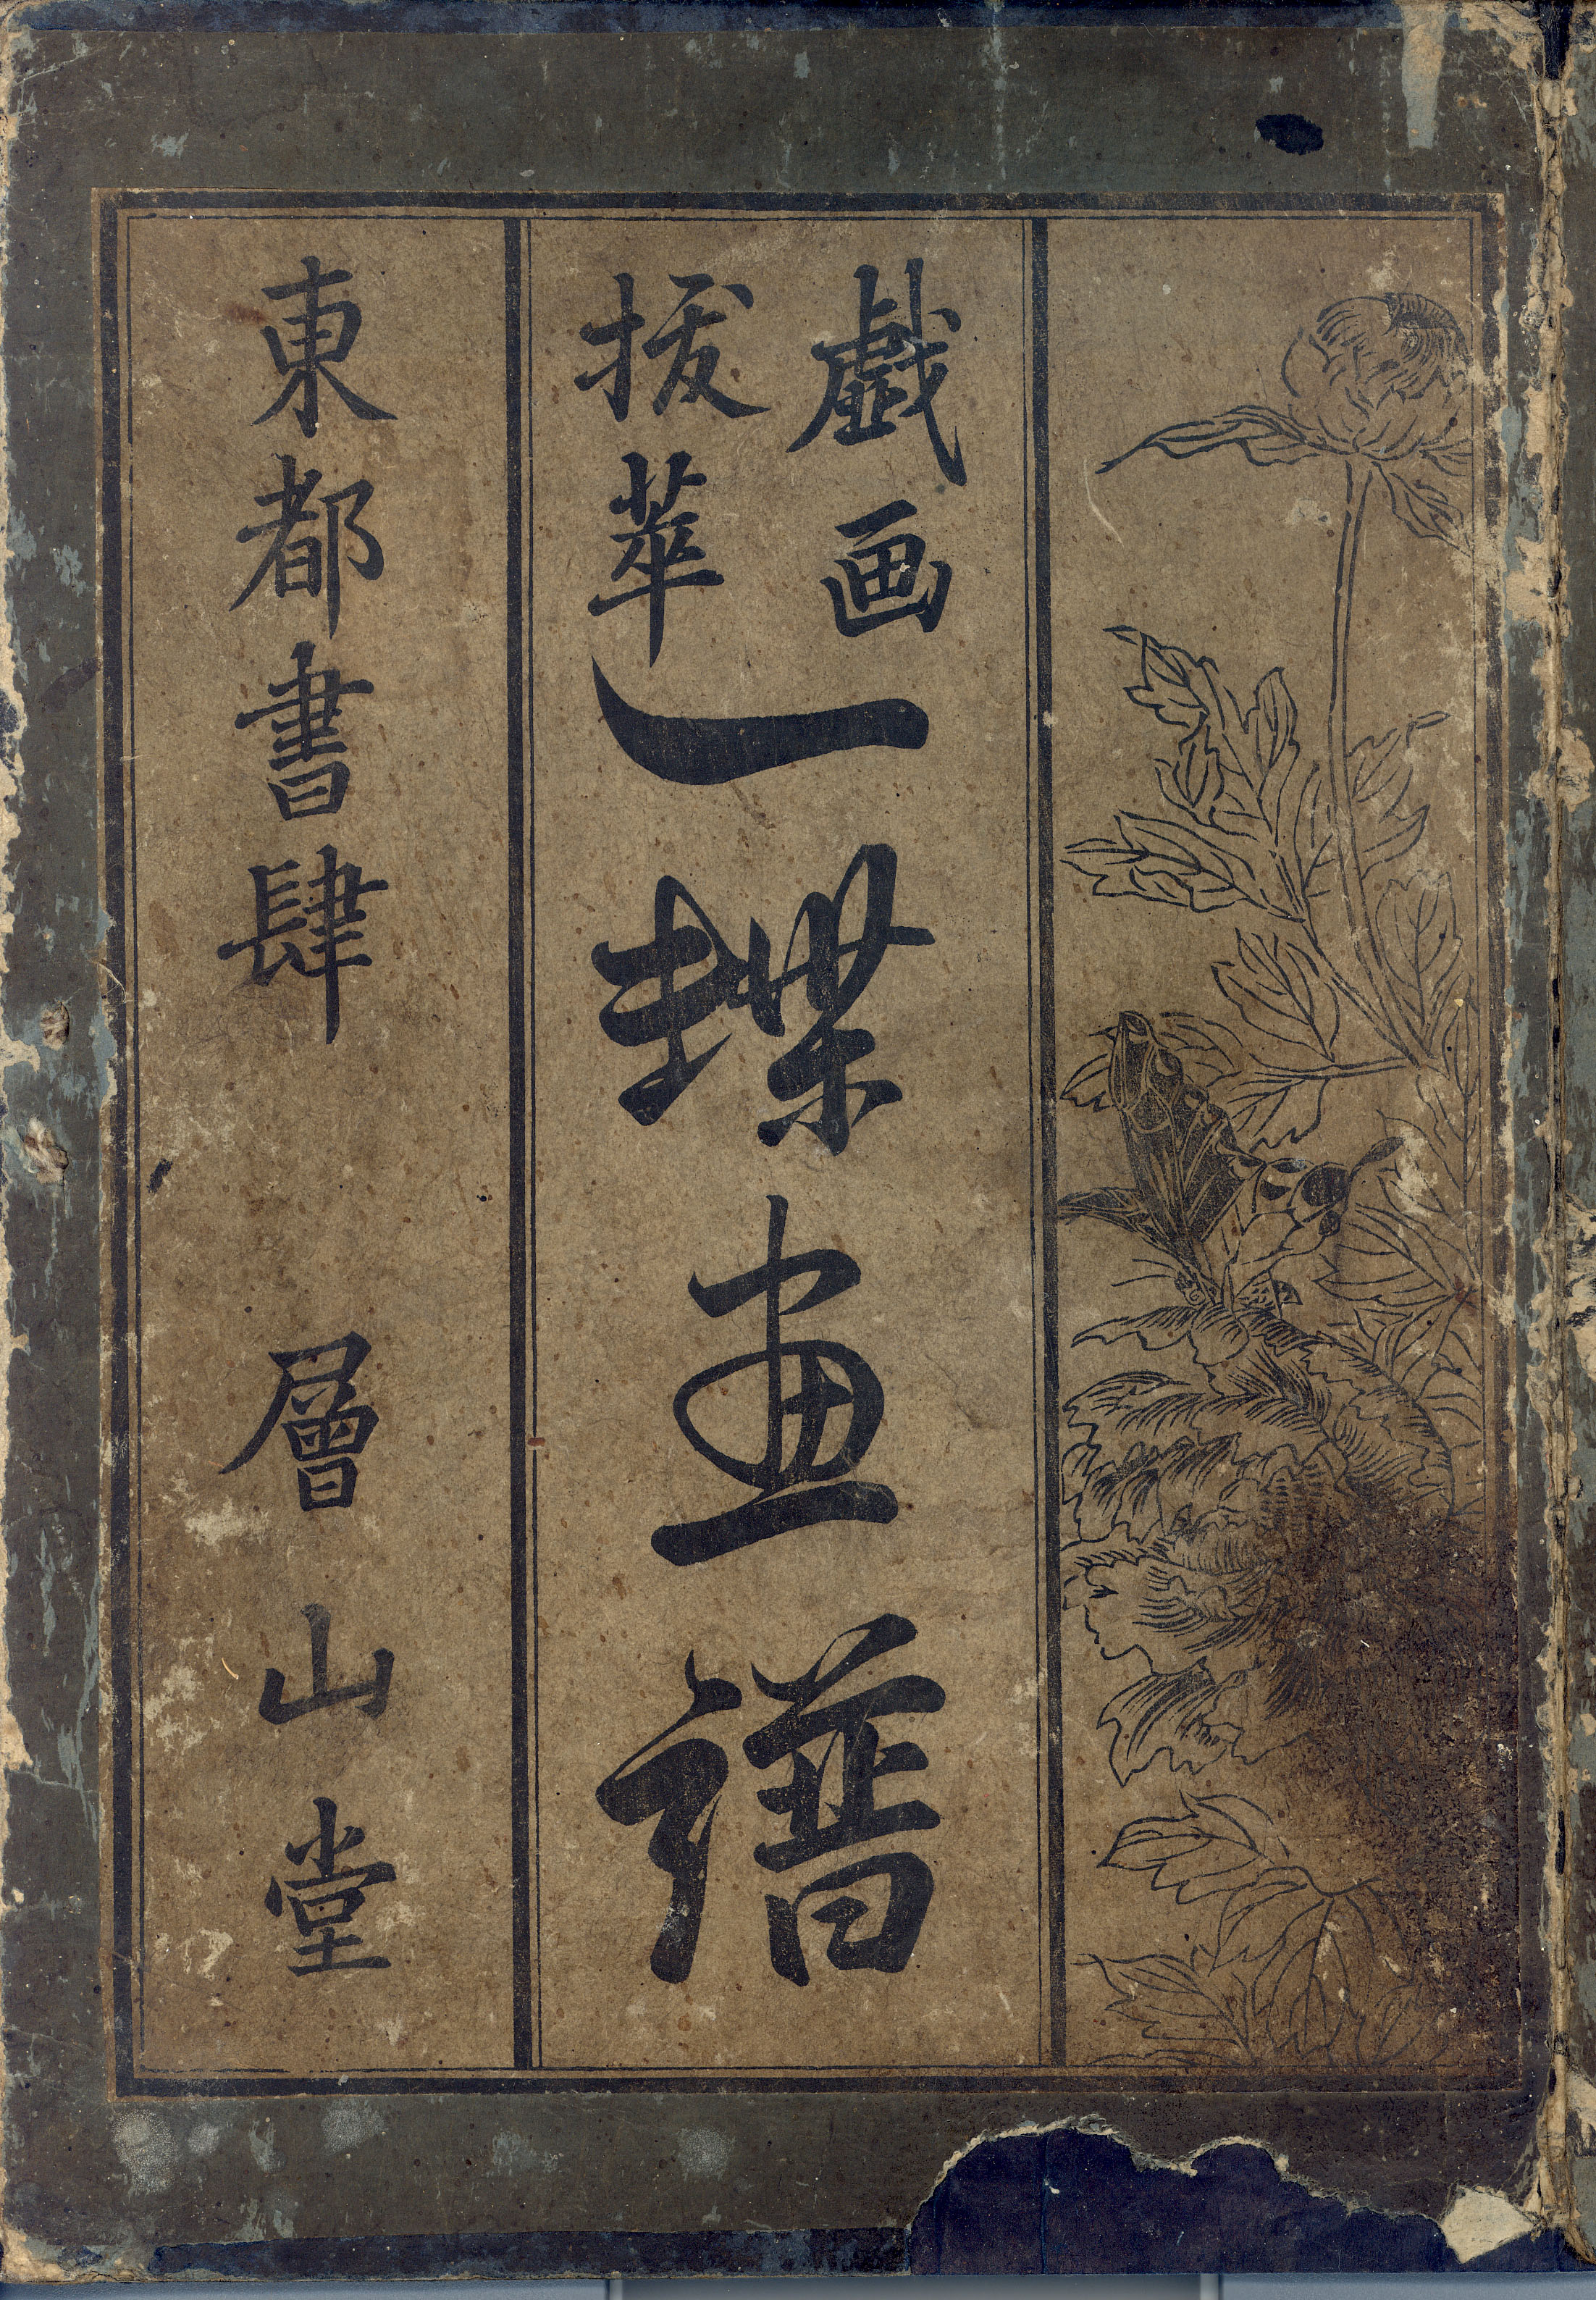 戯画
抜萃
一蝶画譜
東都書肆 層山堂